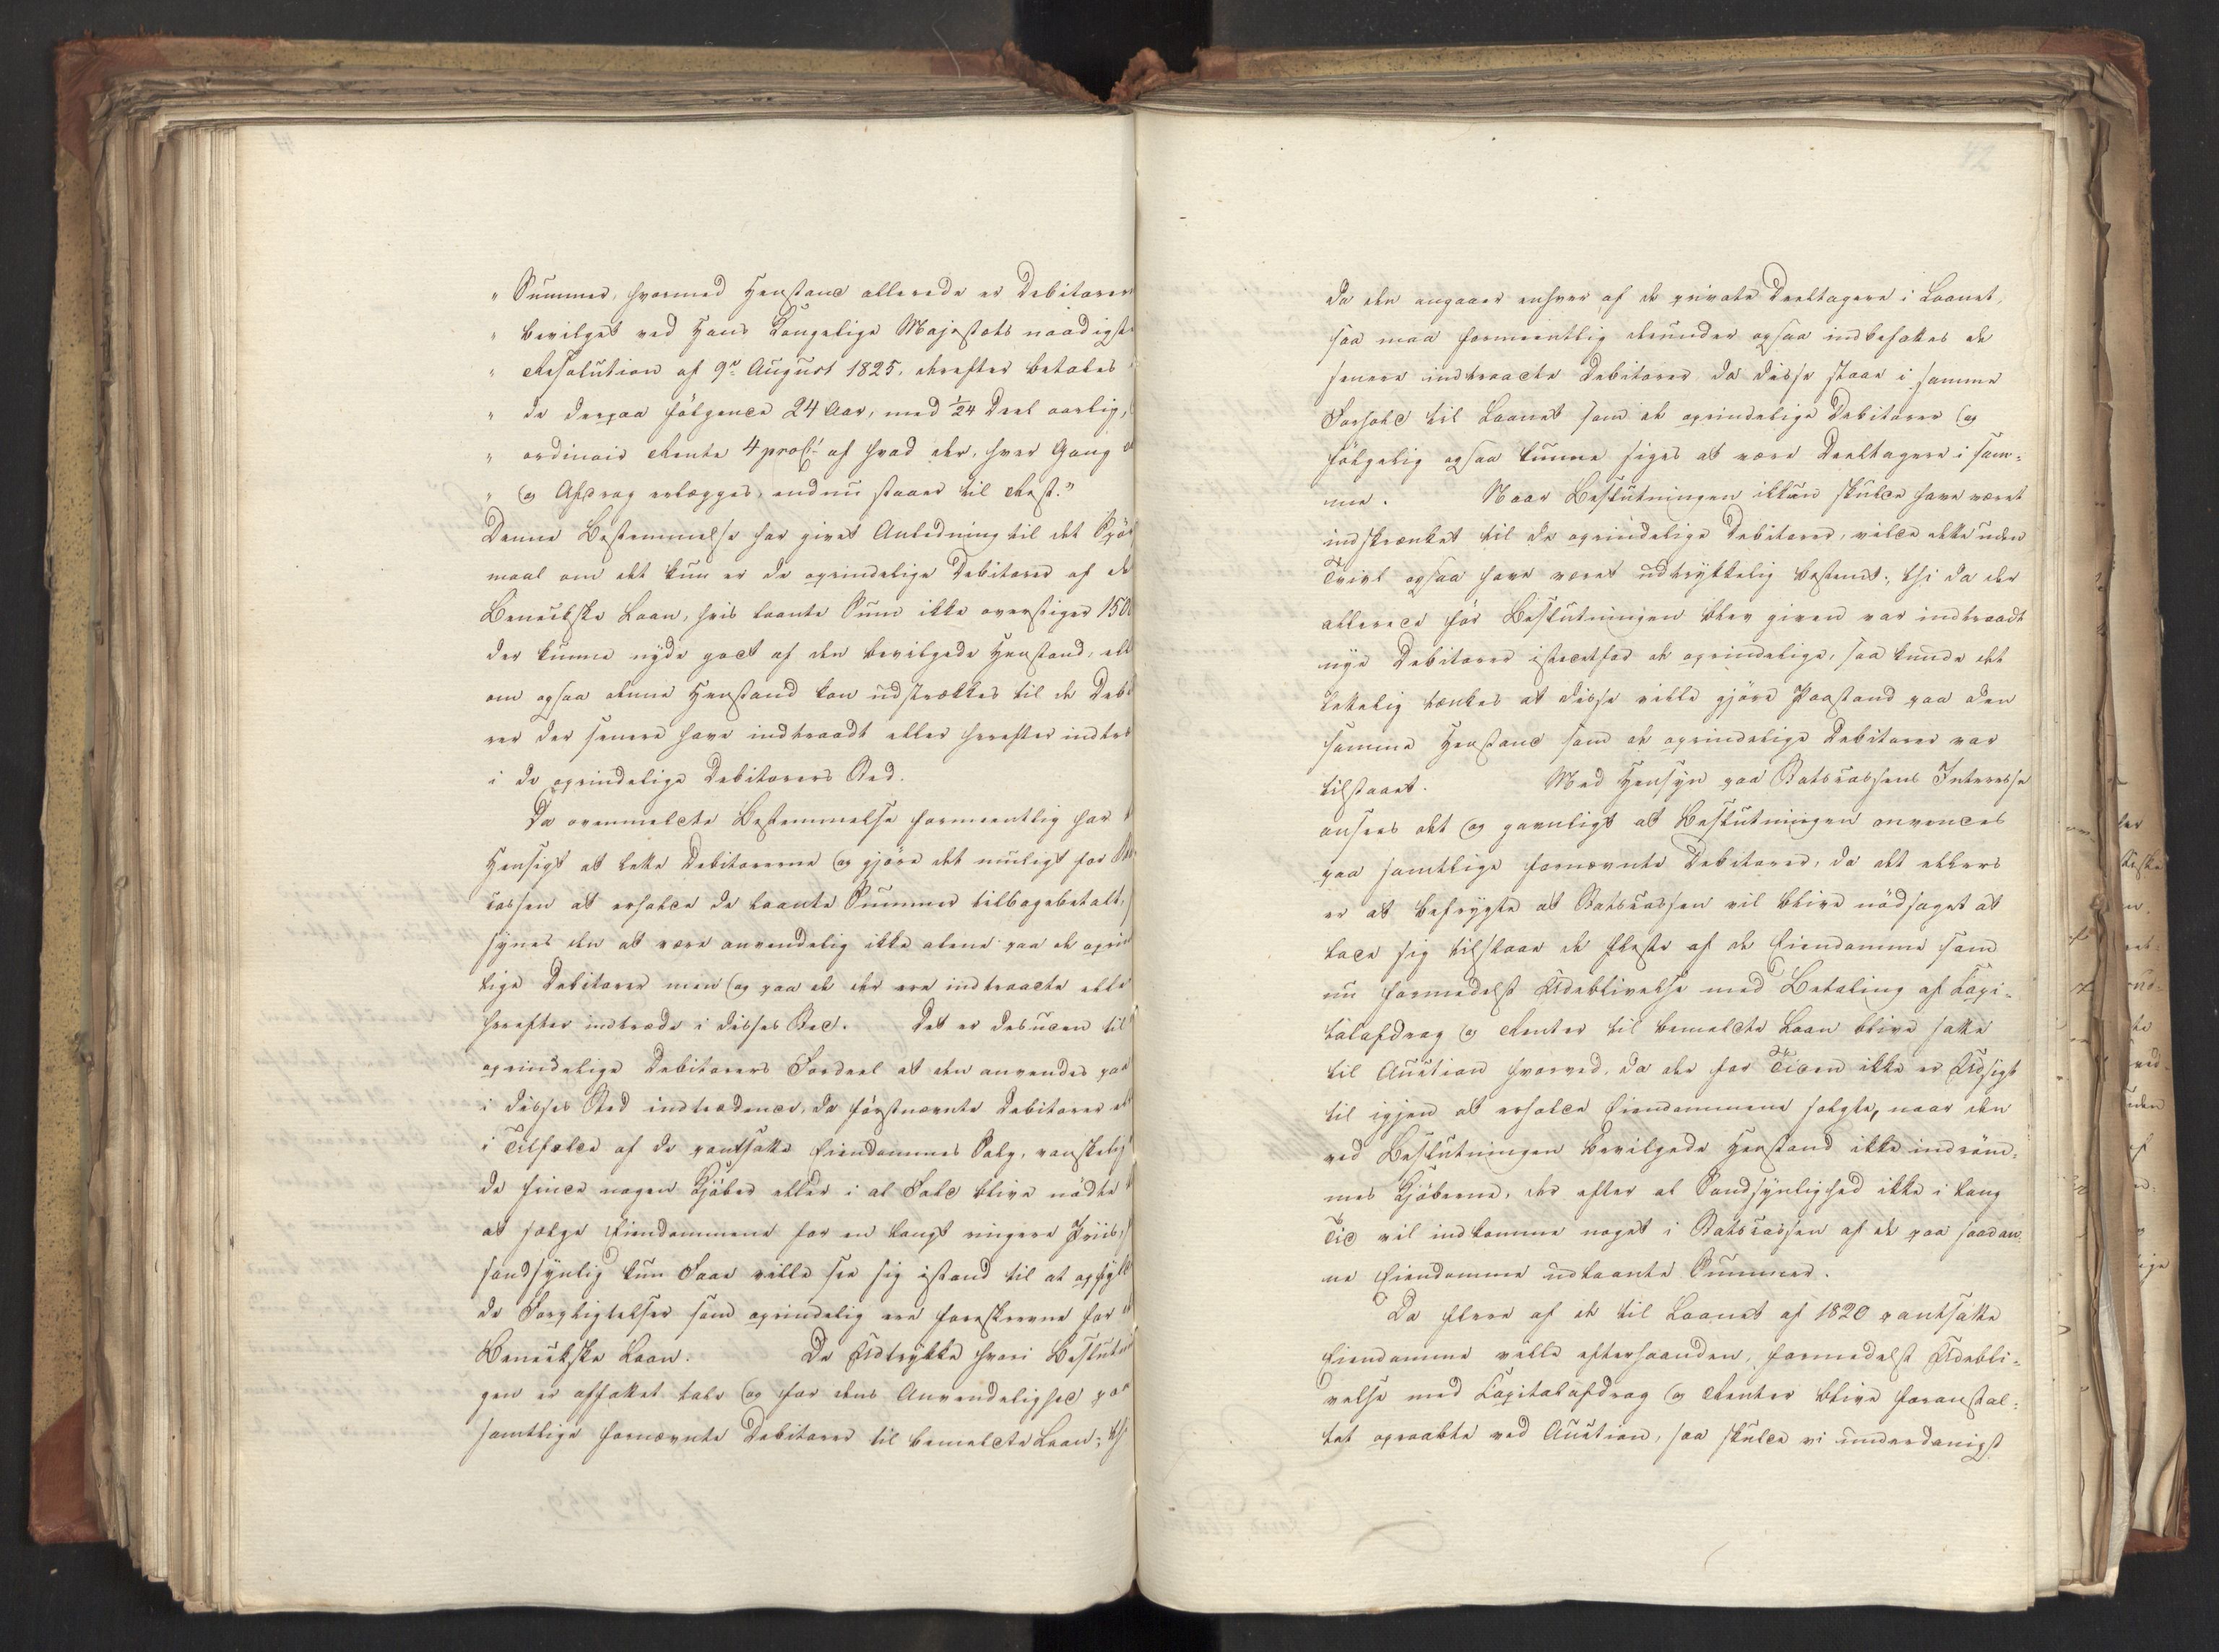 41
" Summer, hvormed Henstand allerede er Debitorern
" bevilget ved Hans Kongelige Majestæts naadigste
" Resolution af 9de August 1825, derefter betales i
" de derpaa følgende 24 Aar, med 1/24 Deel aarlig,
" ordinair Rente 4 proCt af hvad der, hver Gang
" og Afdrag erlægges, endnu staaer til Rest."
Denne Bestemmelse har givet Anledning til det Spørs
maal om det kun er de oprindelige Debitorer af de
Beneckske Laan, hvis laante Sum ikke overstiger 150
der kunne nyde godt af den bevilgede Henstand, ell
om ogsaa denne Henstand kan udstrækkes til de Debi
rer der senere have indtraadt eller herefter indtræ
i de oprindelige Debitorers Sted.
Da ovenmeldte Bestemmelse formeentlig har
Hensigt at lette Debitorerne og gjøre det muligt for Sta
cassen at erholde de laante Summer tilbagebetalt,
synes den at være anvendelig ikke alene paa de oprin
lige Debitorer men og paa de der ere indtraadte elle
herefter indtræde i disses Sted. Det er desuden til
oprindelige Debitorers Fordeel at den anvendes paa
i disses Sted indtrædende, da førstnævnte Debitorer
i Tilfælde af de pantsatte Eiendommes Salg, vanskelig
de finde nogen Kjøber eller i al Fald blive nødte
at sælge Eiendommene for en langt ringere Priis,
sandsynlig kun Faae ville see sig istand til at opfyld
de Forpligtelser som oprindelig ere foreskrevne for
Beneckske Laan. De Udtrykke hvori Beslutni
gen er affattet tale og for dens Anvendelighed paa
samtlige fornævnte Debitorer til bemeldte Laan; thi
42
da den angaaer enhver af de private Deeltagere i Laanet,
saa maa formeentlig derunder ogsaa indbefattes de
senere indtraadte Debitorer da disse staae i samme
Forhold til Laanet som de oprindelige Debitorer og
følgelig ogsaa kunne siges at være Deeltagere i sam=
me. Naar Beslutningen ikkun skulde have været
indskrænket til de oprindelige Debitorer, vilde dette uden
Tvivl ogsaa have været udtrykkelig bestemt; thi da der
allerede før Beslutningen blev given var indtraadt
nye Debitorer istedetfor de oprindelige, saa kunde det
lettelig tænkes at disse ville gjøre Paastand paa den
samme Henstand som de oprindelige Debitorer var
tilstaaet. Med Hensyn paa Statscassens Interesse
ansees det og gavnligt at Beslutningen anvendes
paa samtlige fornævnte Debitorer, da det ellers
er at befrygte at Statscassen vil blive nødsaget at
lade sig tilslaae de fleste af de Eiendomme som
nu formedelst Udeblivelse med Betaling af Capi=
talafdrag og Renter til bemeldte Laan blive satte
til Auction hvorved, da der for Tiden ikke er Udsigt
til igjen at erholde Eiendommene solgte, naar den
ved Beslutningen bevilgede Henstand ikke indrøm=
mes Kjøberne, der efter al Sandsynlighed ikke i lang
Tid vil indkomme noget i Statscassen af de paa saadan=
ne Eiendomme udlaante Summer.
Da flere af de til Laanet af 1820 pantsatte
Eiendomme ville efterhaanden, formedelst Udebli=
velse med Capitalafdrag og Renter blive foranstal=
tet opraabte ved Auction, saa skulde vi underdanigst